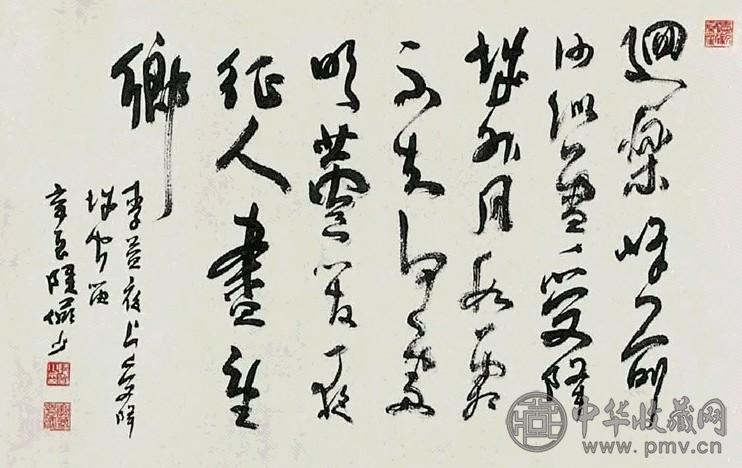 迴樂峰前
沙似雪受降
城外月如霜
不知何處
吹蘆管一夜
征人盡望
鄉
李益夜上受降
城聞笛
辛酉陸儼少
中华收藏网
www.pmv.cn